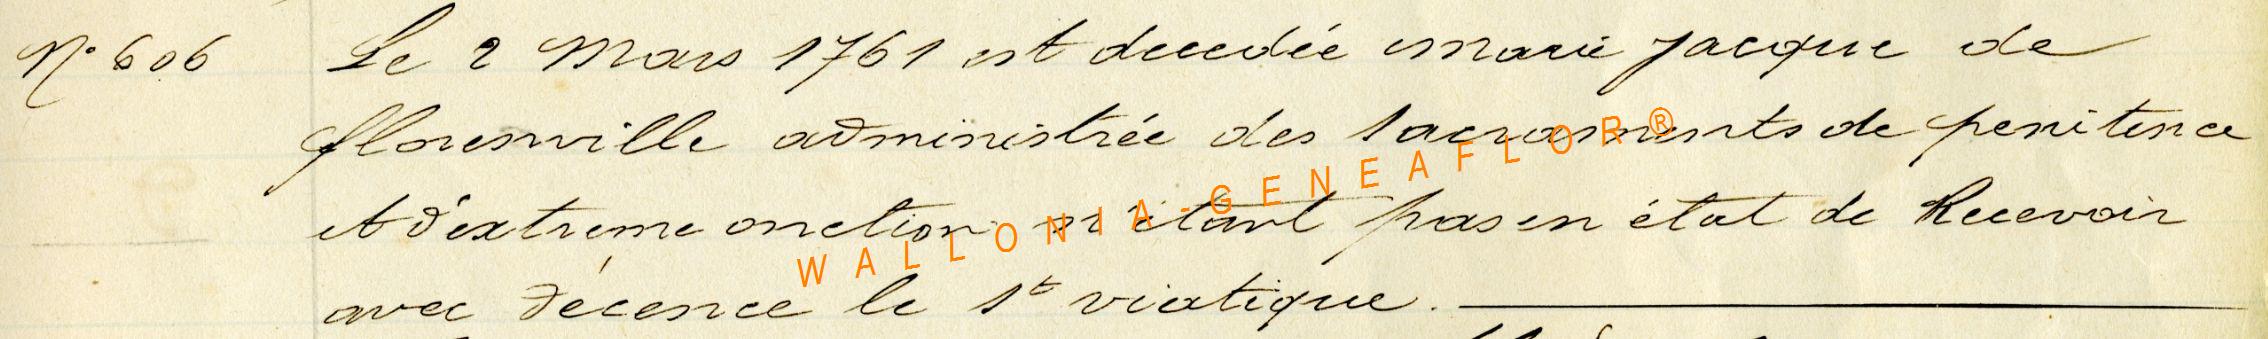 N° 606 Le 2 Mars 1761 est decedée marie jacque de
florenville administrée des sacraments de penitence
et d'extreme onction n'étant pas en état de Recevoir
avec décence le st viatique.
WALLONIA-GENEAFLOR®